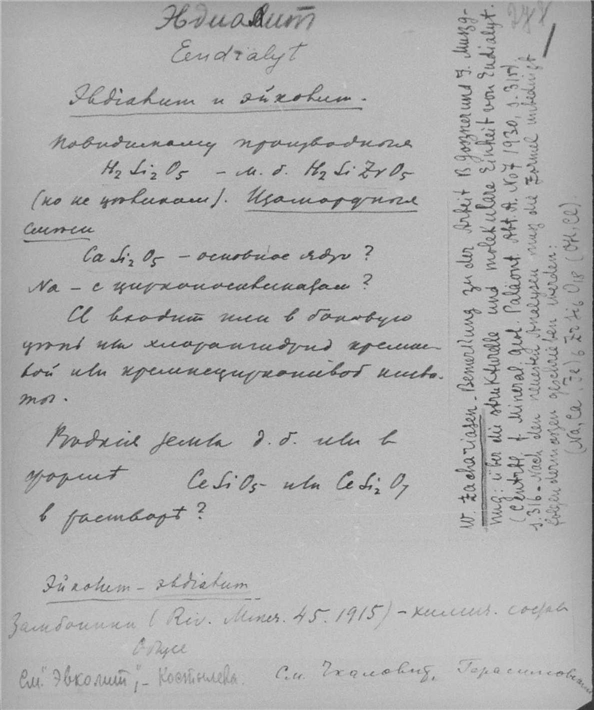 Эвдиалит
Eudialyt
Эвдіалит и эйколит.
Повидимому производныя
H2Si2O5 – м. б. H2SiZrO5
(но не цирконил). Изоморфныя
смѣси
CaSi2O5 – основное ядро?
Na – с цирконосиликатом?
Cl входит или в боковую
цѣпь или хлорангидрид кремне-
вой или кремнецирконіевой кисло-
ты.
Рѣдкія земли д. б. или в
формѣ CeSiO5 или CeSi2O7
в растворѣ?
Эйколит – эвдіалит
Замбонини (Riv. Miner. 45. 1915) – химич. состав
Общее
См. "Эвколит", – Костылева. См. Чкаловит, Герасимовский
277
W. Zachariasen – Bemerkung zu der Arbeit B. Gossner und F. Mussg-
nug: über die strukturelle und molekulare Einheit von Eudialyt.
(Centrbl. f. Mineral. Geol. Paläont. Abt. A. No 7 1930, S. 315)
S. 316 – Nach den neuesten Analysen muß die Formel unbedingt
folgendermaßen geschrieben werden:
(Na, Ca, Fe)6 Zr Si6 O18 (OH, Cl)